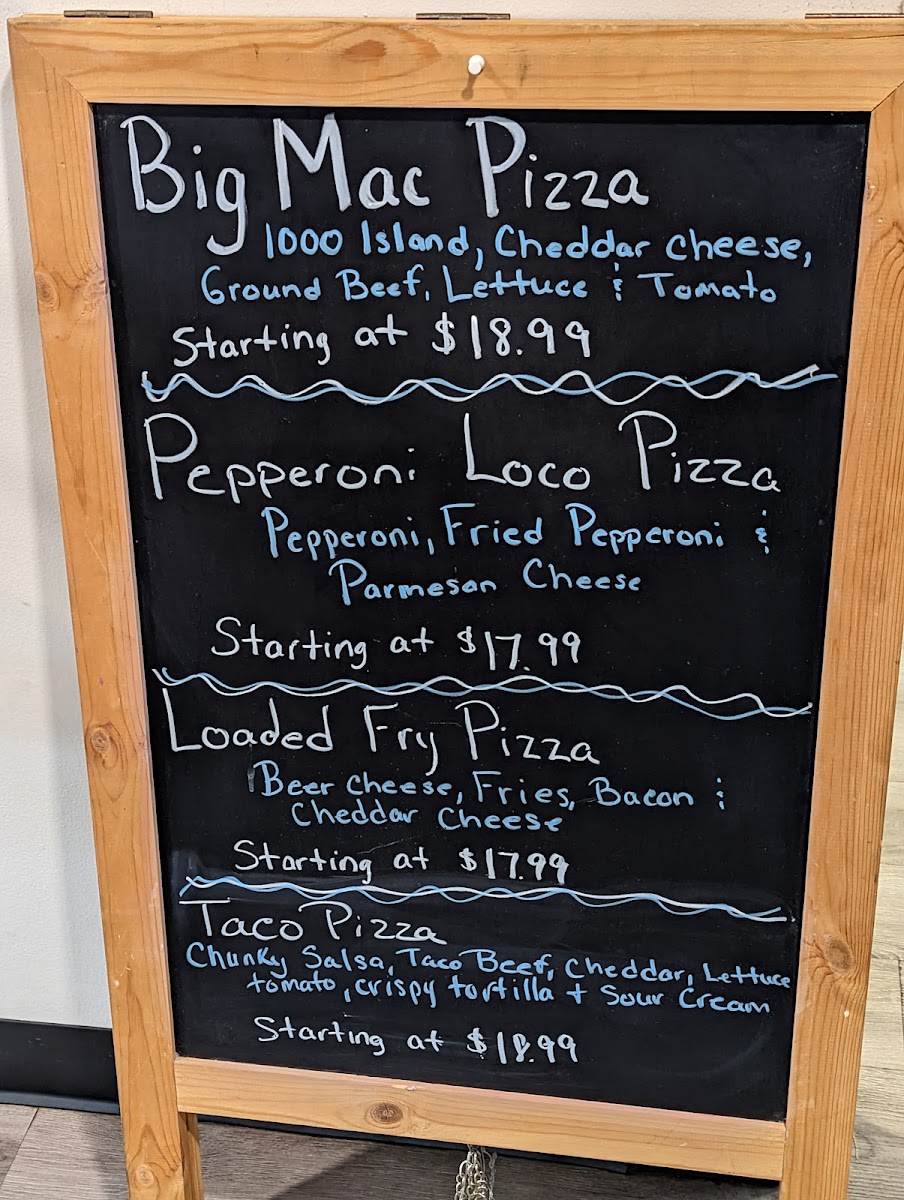 Big Mac Pizza
1000 Island, Cheddar cheese,
Ground Beef, Lettuce & Tomato
Starting at $18.99
Pepperoni Loco Pizza
Pepperoni, Fried Pepperoni &
Parmesan Cheese
Starting at $17.99
Loaded Fry Pizza
Beer cheese, Fries, Bacon &
Cheddar cheese
Starting at $17.99
Taco Pizza
Chunky Salsa, Taco Beef, Cheddar, Lettuce
tomato, crispy tortilla + Sour Cream
Starting at $18.99